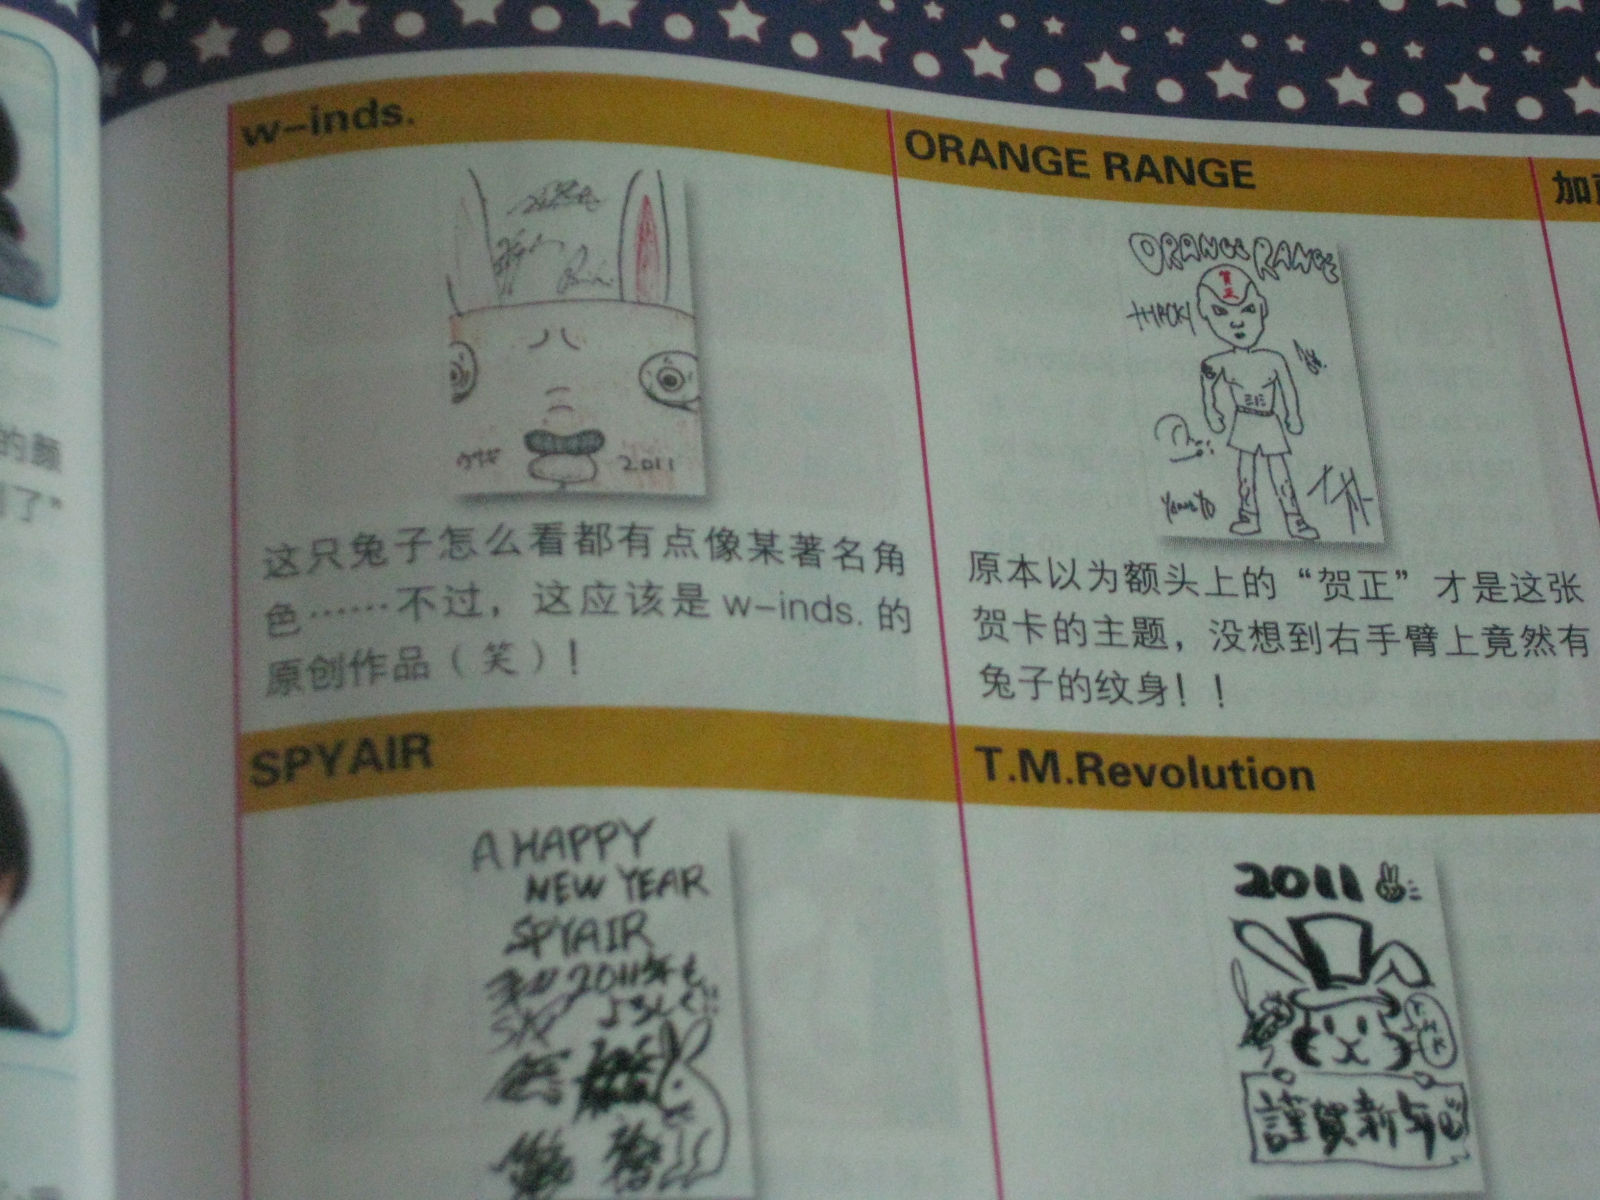 w-inds.
2011
这只兔子怎么看都有点像某著名角
色……不过，这应该是 w-inds. 的
原创作品（笑）！
ORANGE RANGE
ORANGE RANGE
賀
正
原本以为额头上的“贺正”才是这张
贺卡的主题，没想到右手臂上竟然有
兔子的纹身！！
加
的
了”
SPYAIR
A HAPPY
NEW YEAR
SPYAIR
2011年も
よろしく
T.M.Revolution
2011
謹賀新年